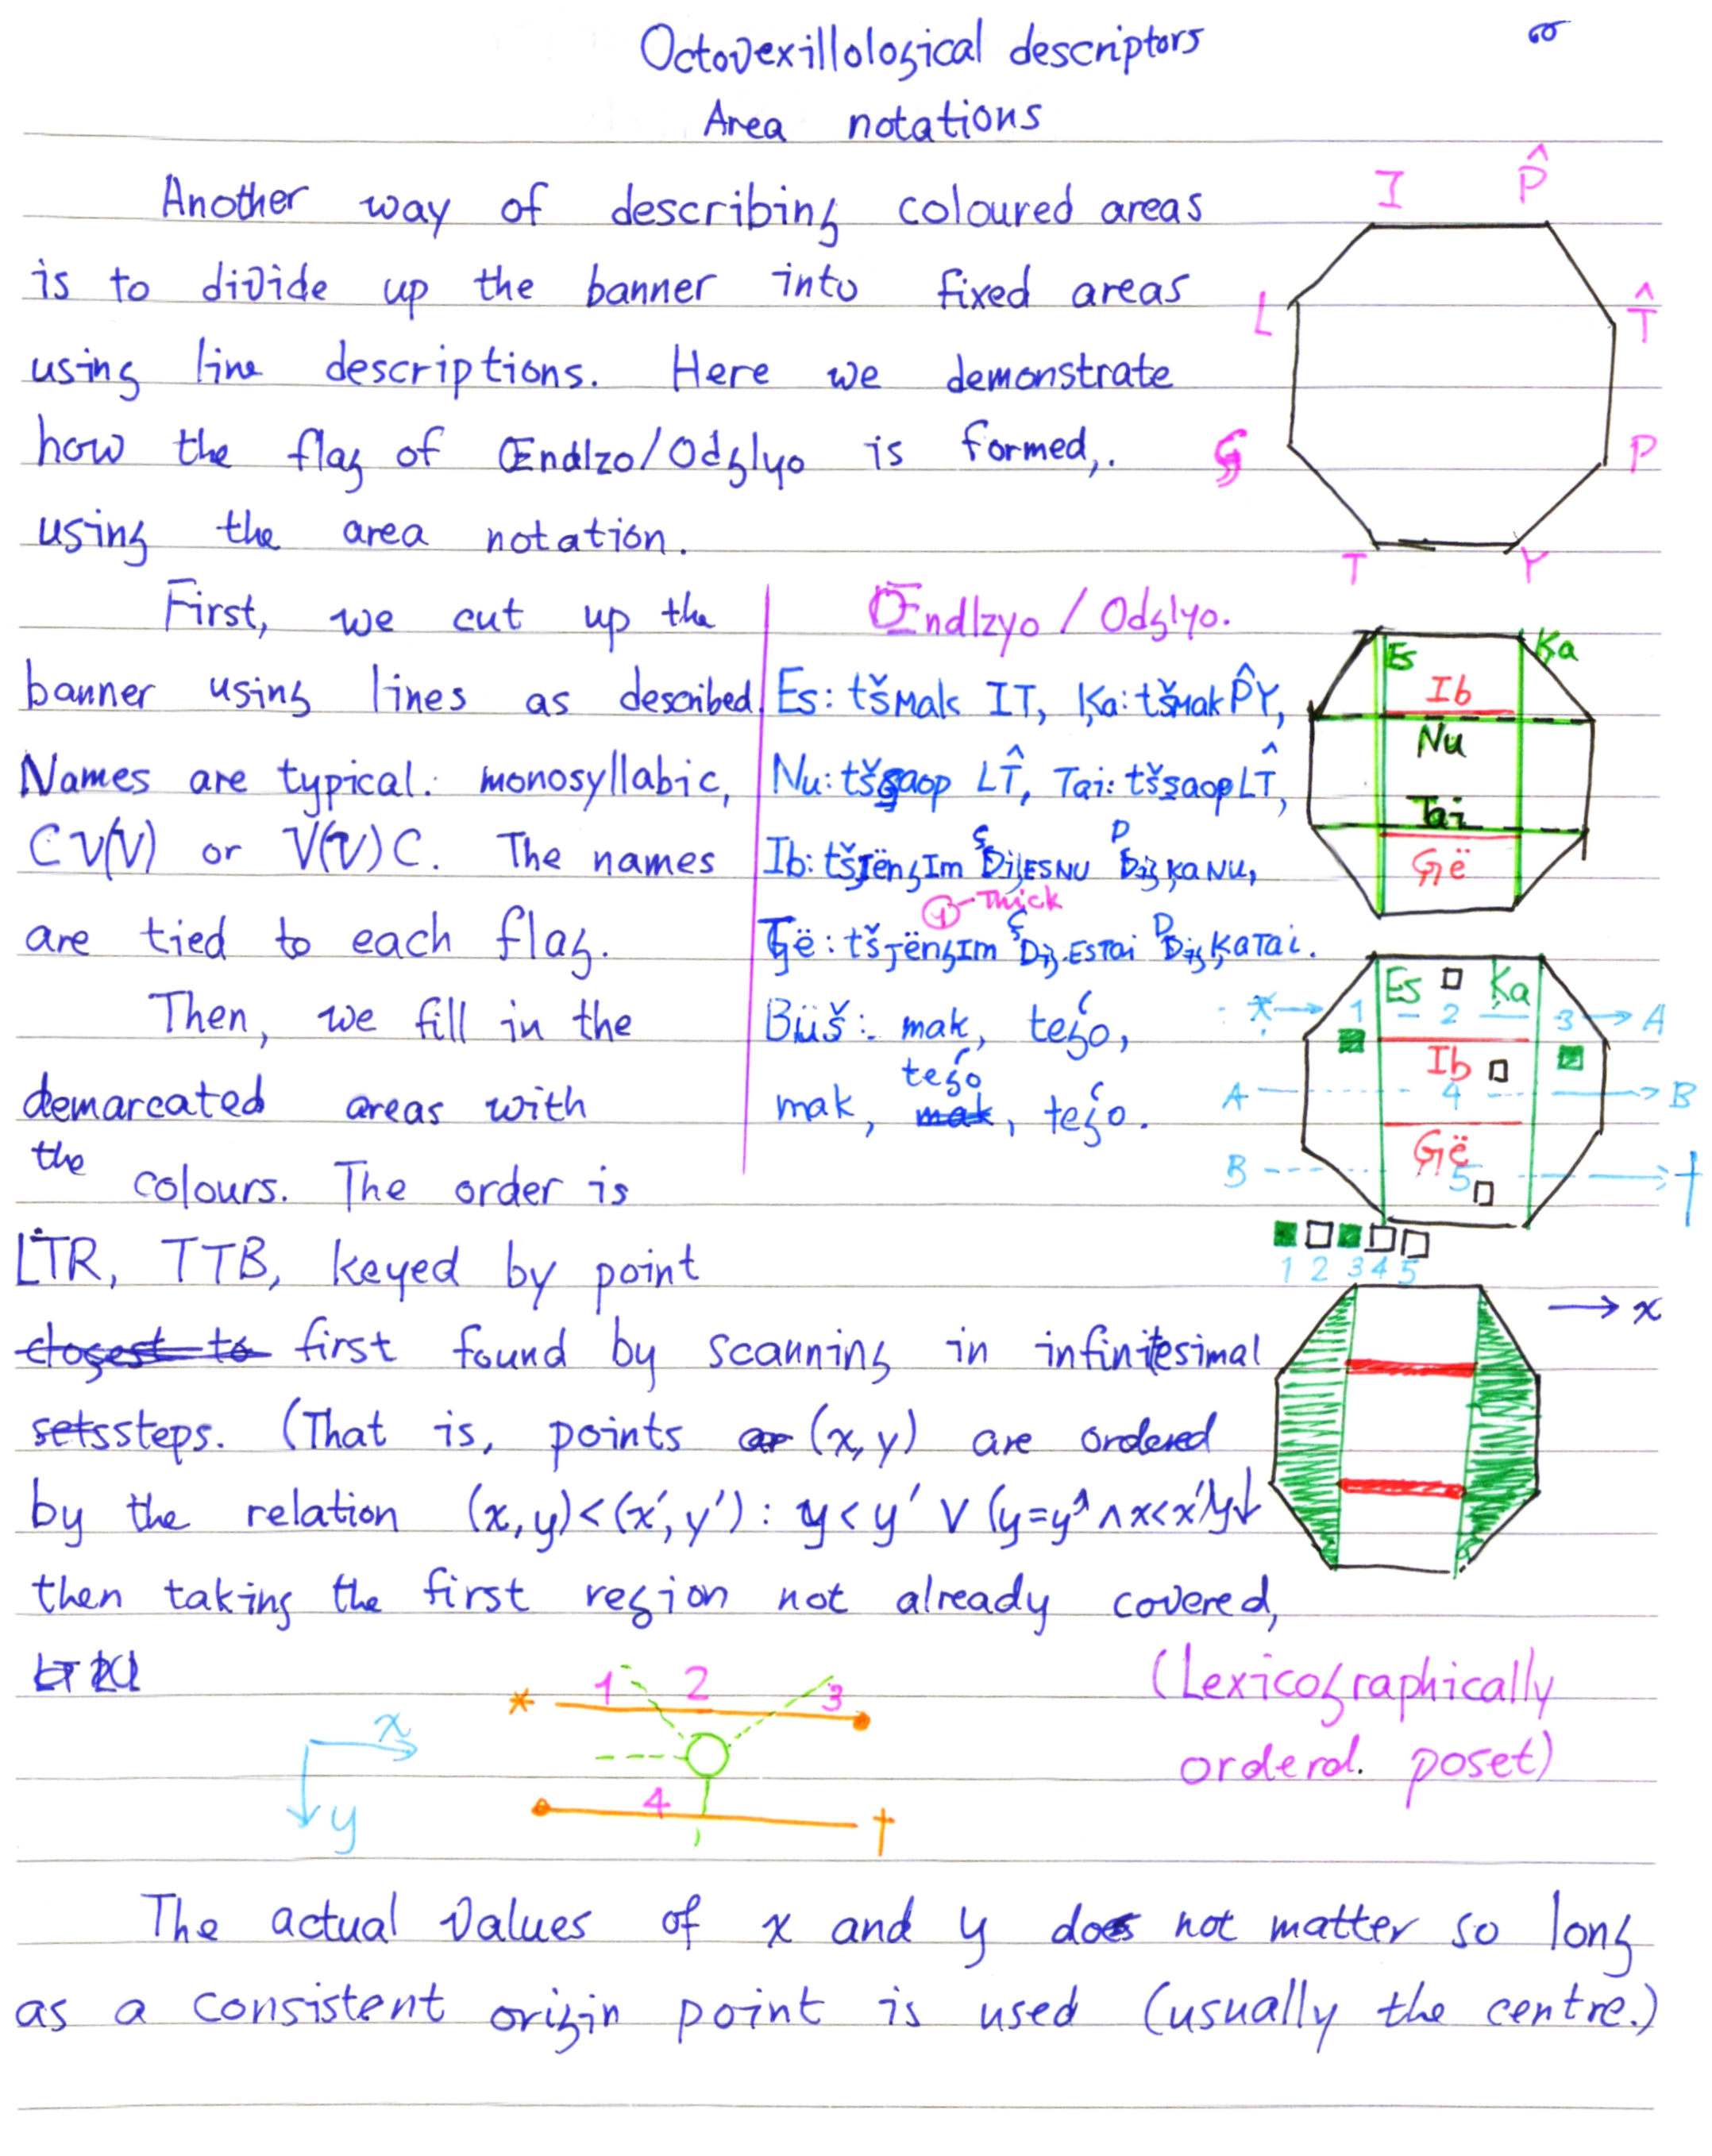 Octovexillological descriptors
Area notations
Another way of describing coloured areas
is to divide up the banner into fixed areas
using line descriptions. Here we demonstrate
how the flag of Œndlzo/Odglyo is formed,.
using the area notation.
I P̂
L T̂
P
T Y
First, we cut up the
banner using lines as described.
Names are typical: monosyllabic,
CV(V) or V(V)C. The names
are tied to each flag.
Then, we fill in the
demarcated areas with
the colours. The order is
LTR, TTB, keyed by point
closest to first found by scanning in infinitesimal
sets steps. (That is, points (x,y) are ordered
by the relation (x,y)<(x',y'): y<y' ∨ (y=y' ∧ x<x') y↓
then taking the first region not already covered,
Œndlzyo / Odglyo.
Es: tšmak IT, Ķa: tšmak P̂Y,
Nu: tšgaop LT̂, Tai: tšgaop LT̂,
Ib: tšjëngim ESNU ĶANU,
Thick
Ģë: tšjëngim ESTai ĶATAi.
Büš: mak, teģo,
teģo
mak, mak, teģo.
Es Ķa
Ib
Nu
Tai
Ģë
Es Ķa
* 1 2 3 A
Ib
A 4 B
Ģë
B 5 †
1 2 3 4 5
→ x
(Lexicographically
orderd. poset)
* 1 2 3
4 †
x
y
The actual values of x and y does not matter so long
as a consistent origin point is used (usually the centre.)